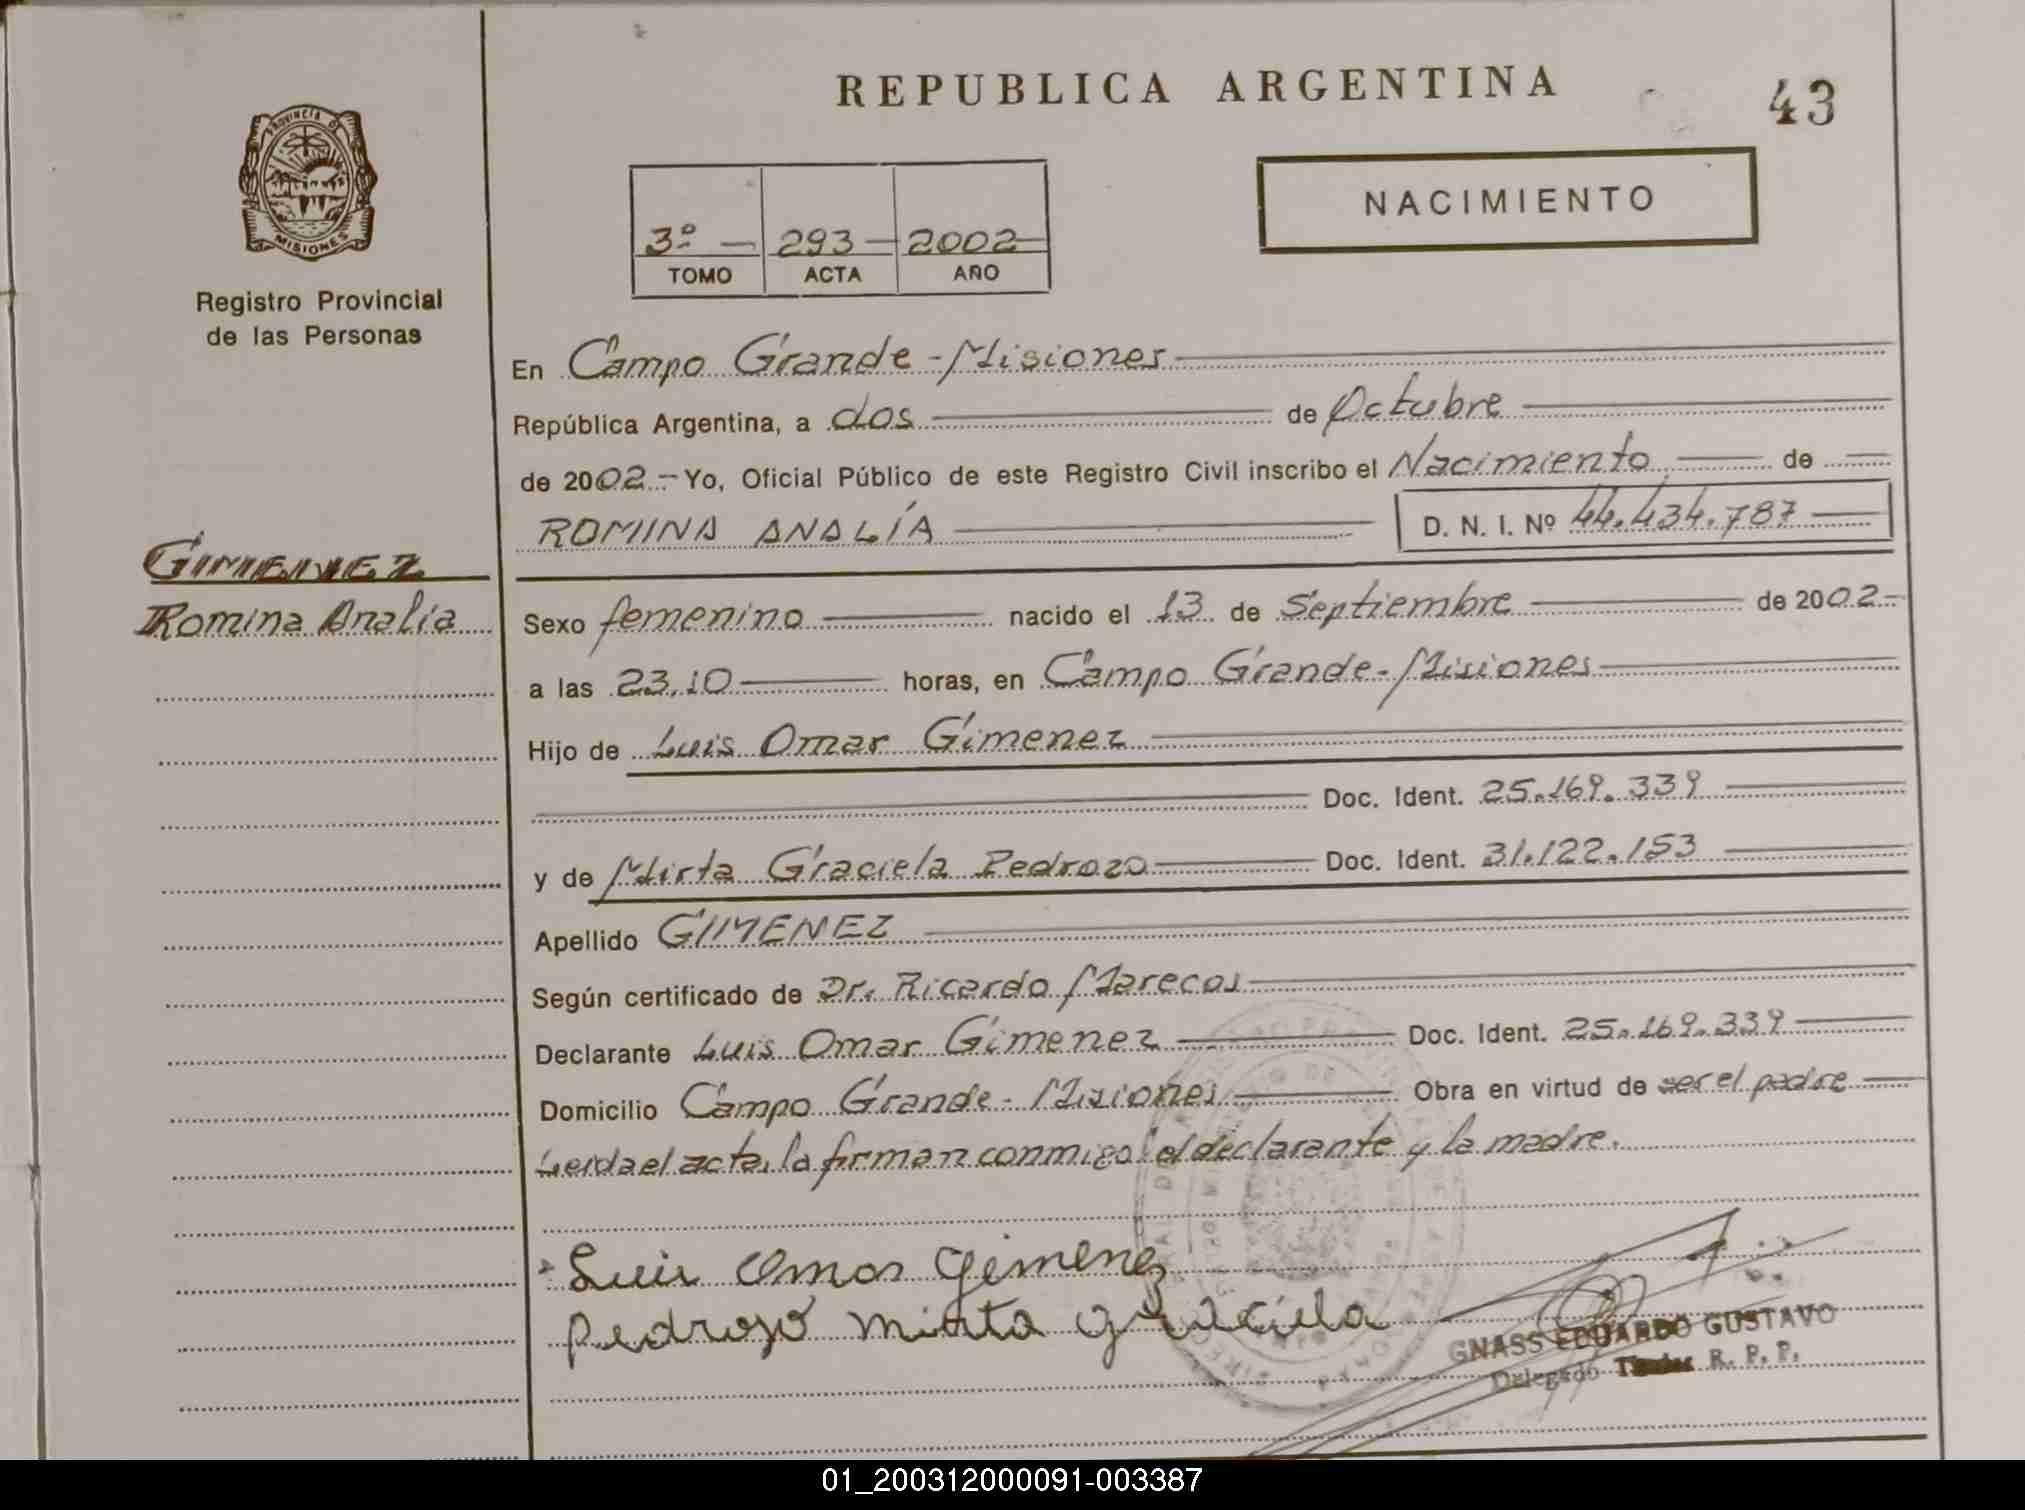 REPUBLICA ARGENTINA
43
PROVINCIA DE
MISIONES
Registro Provincial
de las Personas
NACIMIENTO
3º — 293 — 2002 —
TOMO ACTA AÑO
En Campo Grande - Misiones
República Argentina, a dos de Octubre
de 2002.- Yo, Oficial Público de este Registro Civil inscribo el Nacimiento de
ROMINA ANALÍA D. N. I. Nº 44.434.787
GIMENEZ
Romina Analía
Sexo femenino nacido el 13 de Septiembre de 2002-
a las 23.10 horas, en Campo Grande - Misiones
Hijo de Luis Omar Gimenez
Doc. Ident. 25.169.339
y de Mirta Graciela Pedrozo Doc. Ident. 31.122.153
Apellido GIMENEZ
Según certificado de Dr. Ricardo Marecos
Declarante Luis Omar Gimenez Doc. Ident. 25.169.339
Domicilio Campo Grande - Misiones Obra en virtud de ser el padre
Leida el acta, la firman conmigo el declarante y la madre.
Luis Omar Gimenez
Pedrozo Mirta Graciela
GNASS EDUARDO GUSTAVO
Delegado Titular R. P. P.
01_200312000091-003387